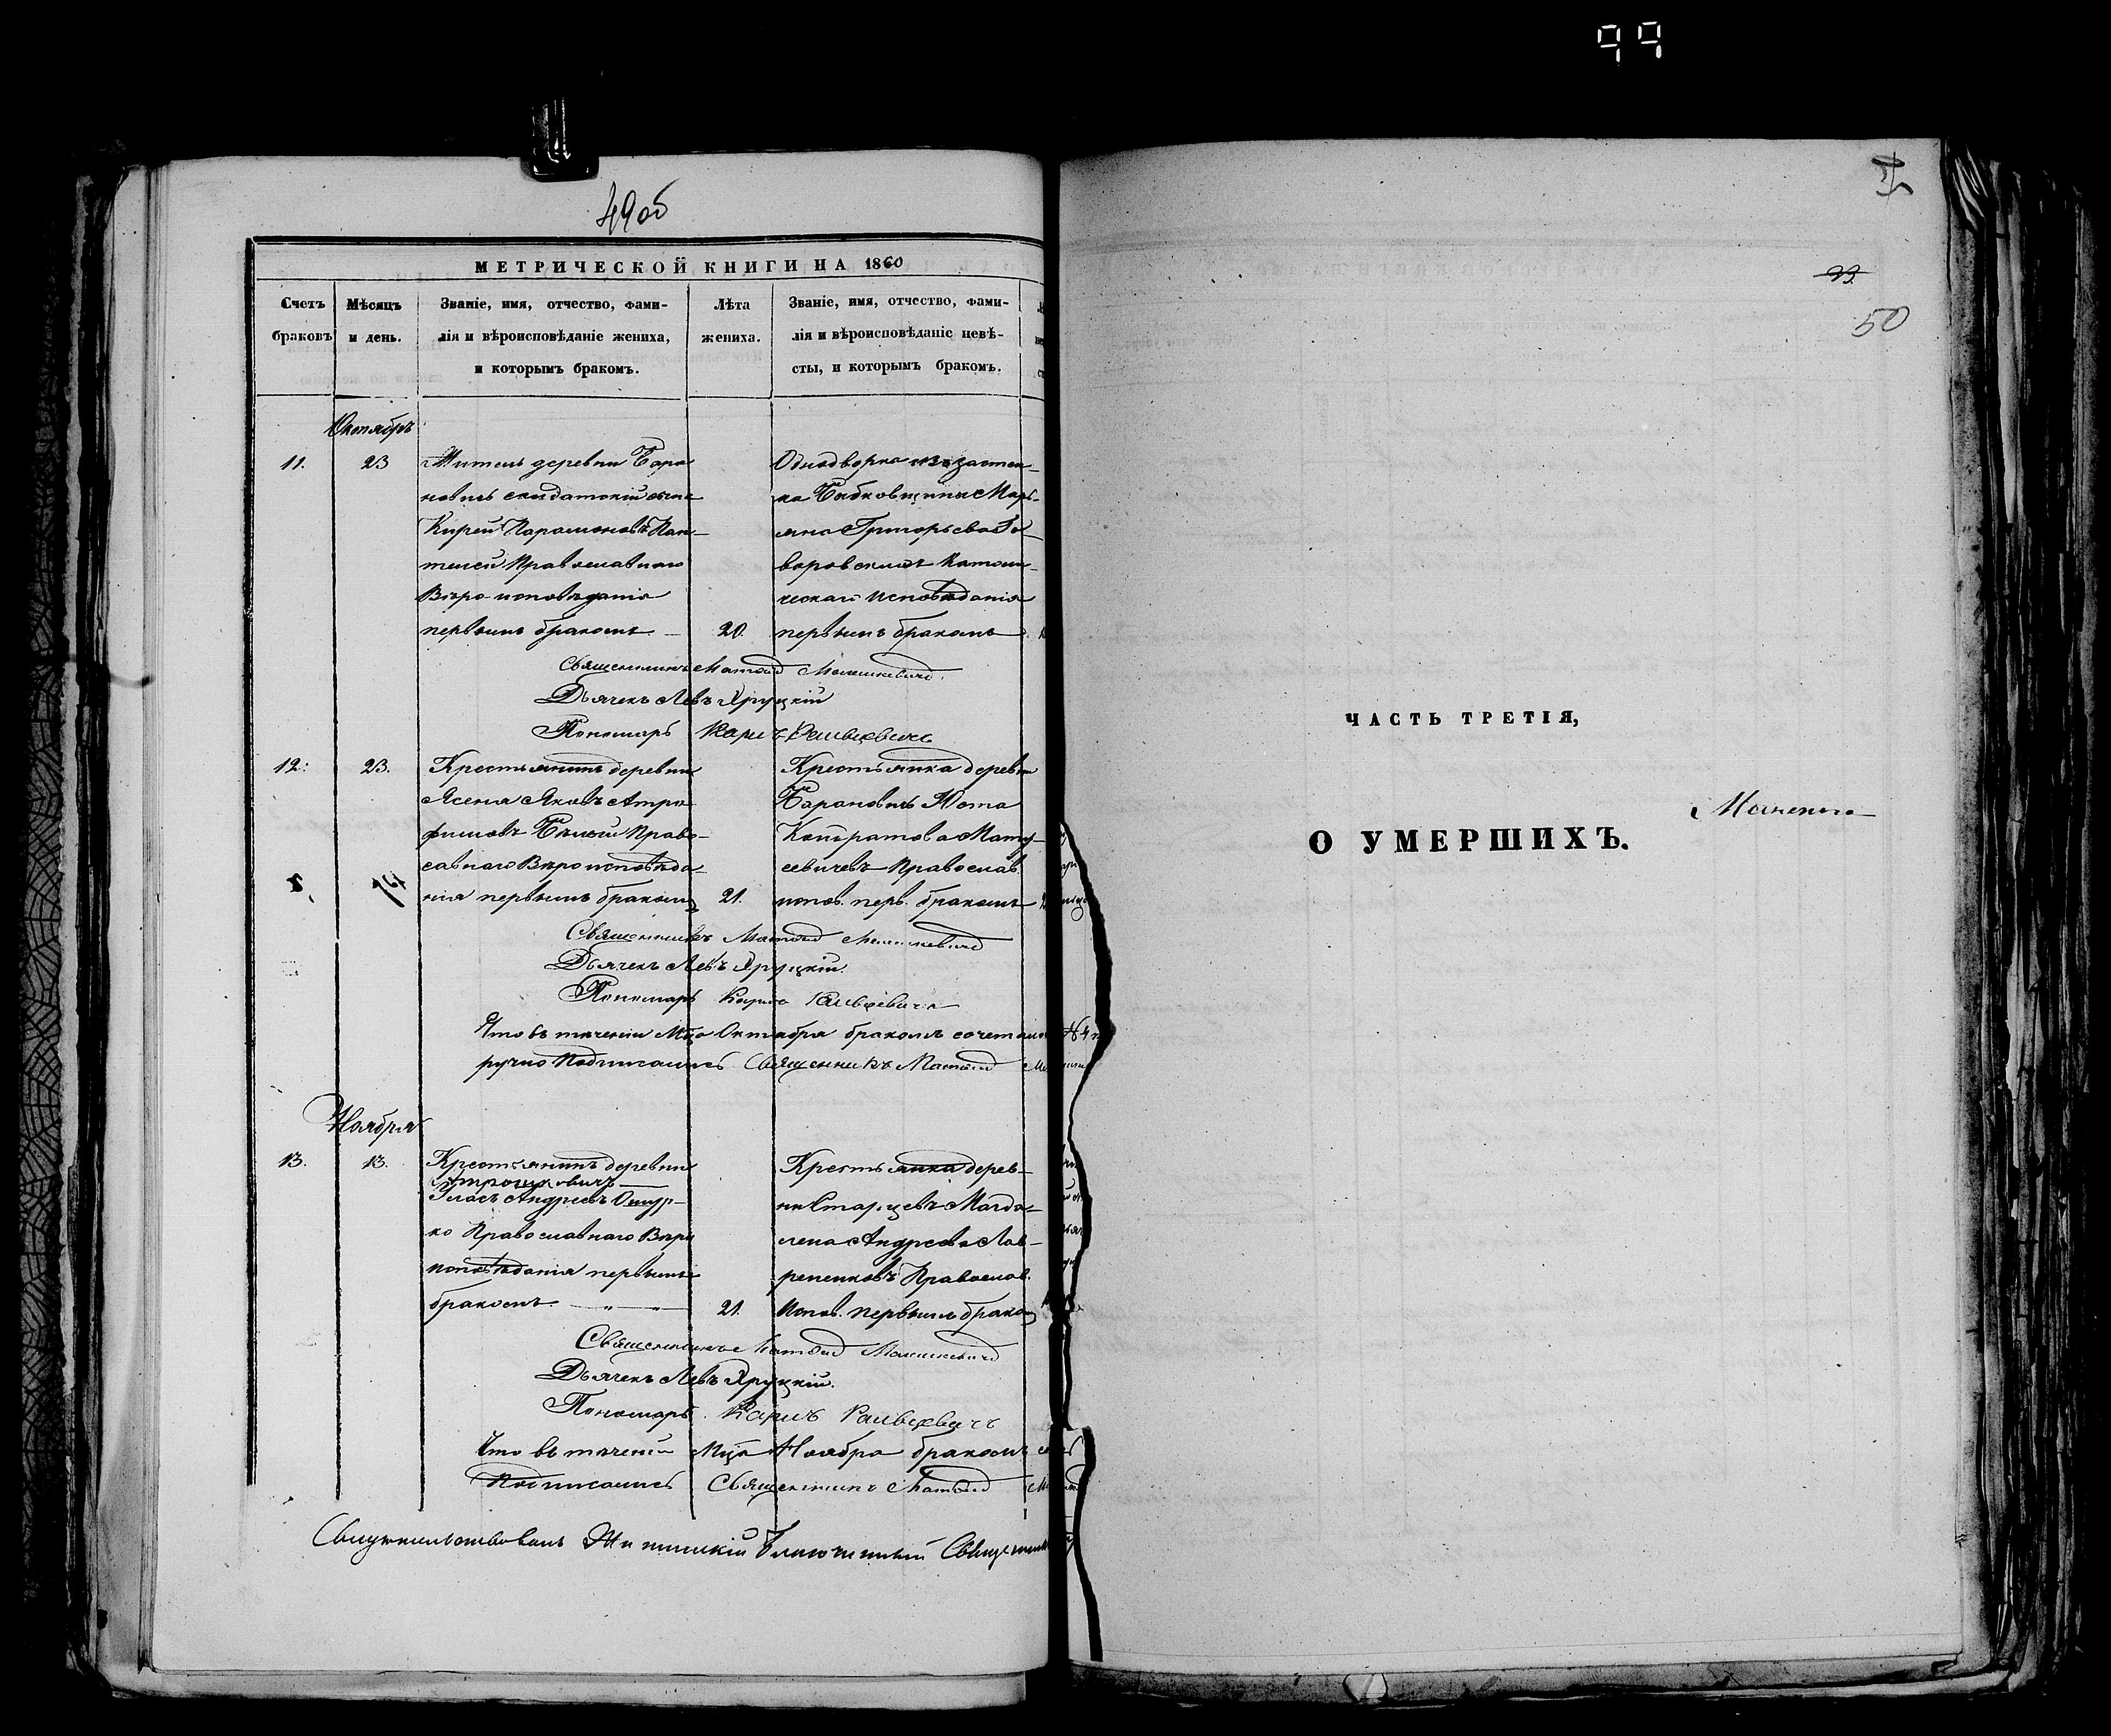 99
49об
МЕТРИЧЕСКОЙ КНИГИ НА 1860
Счетъ браковъ
Мѣсяцъ и день.
Званіе, имя, отчество, фами-
лія и вѣроисповѣданіе жениха,
и которымъ бракомъ.
Лѣта
жениха.
Званіе, имя, отчество, фами-
лія и вѣроисповѣданіе невѣ-
сты, и которымъ бракомъ.
Октябръ
11.
23
Житель деревни Бара
новичъ солдатскій сынъ
Кирей Парамоновъ Пан-
телей Православнаго
Вѣро-исповѣданія
первымъ бракомъ.
20.
Однодворка изъ застен-
ка Марь-
яна Григорьева Го-
воровскихъ Католи-
ческаго Исповѣданія
первымъ бракомъ
Священникъ Матѳій
Дьячекъ Левъ Яруцкій
Пономарь Карпъ
12.
23.
Крестьянинъ деревни
Ясеня Яковъ Атро-
фимовъ Право-
славнаго Вѣроисповѣда-
нія первымъ бракомъ
21.
Крестьянка деревни
Барановичъ Юста
Кондратова Мату-
севичевъ Православ.
испов. перв. бракомъ
Священникъ Матѳій
Дьячекъ Левъ Яруцкій.
Пономарь Карпъ
Что въ теченіи Мца Октября бракомъ сочетало
ручно Подписались Священникъ Матѳій
Ноября
13.
13.
Крестьянинъ деревни
Власъ Андреевъ
ко Православнаго Вѣро
исповѣданія первымъ
бракомъ.
21.
Крестьянка дерев-
ни Старцевъ Магда-
лена Андреева Лав-
рененковъ Православ.
Испов. первымъ бракомъ
Священникъ Матѳій
Дьячекъ Левъ Яруцкій.
Пономарь Карпъ
Что въ теченіи Мца Ноября бракомъ
Подписались Священникъ Матѳій
Свидетельствовалъ Благочинный Священникъ
50
ЧАСТЬ ТРЕТІЯ,
О УМЕРШИХЪ.